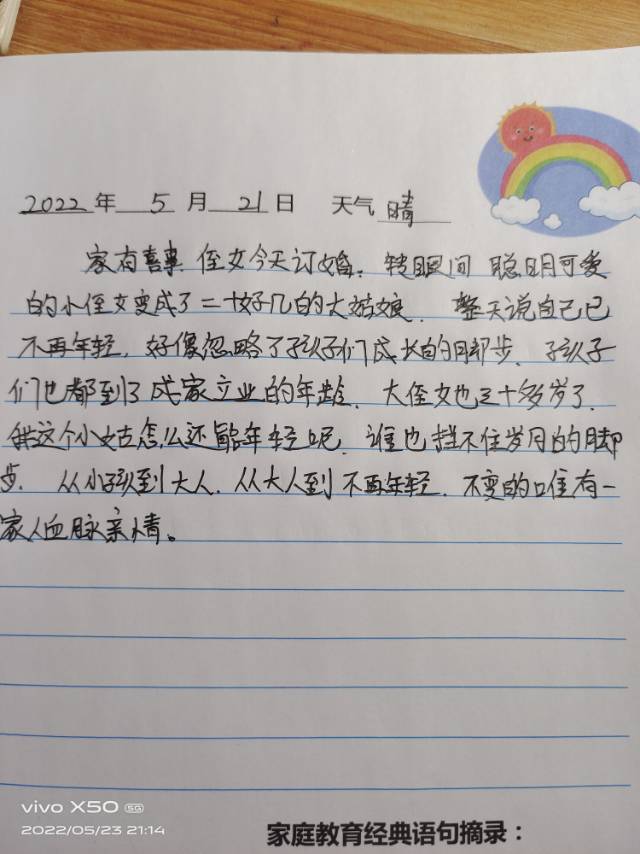 2022年 5 月 21日 天气 晴
家有喜事 侄女今天订婚。转眼间 聪明可爱
的小侄女变成了二十好几的大姑娘. 整天说自己已
不再年轻. 好像忽略了孩子们成长的脚步. 孩子
们也都到了成家立业的年龄. 大侄女也三十多岁了.
我这个小姑怎么还能年轻呢. 谁也挡不住岁月的脚
步. 从小孩到大人. 从大人到不再年轻. 不变的唯有一
家人血脉亲情。
vivo X50 5G
2022/05/23 21:14
家庭教育经典语句摘录：